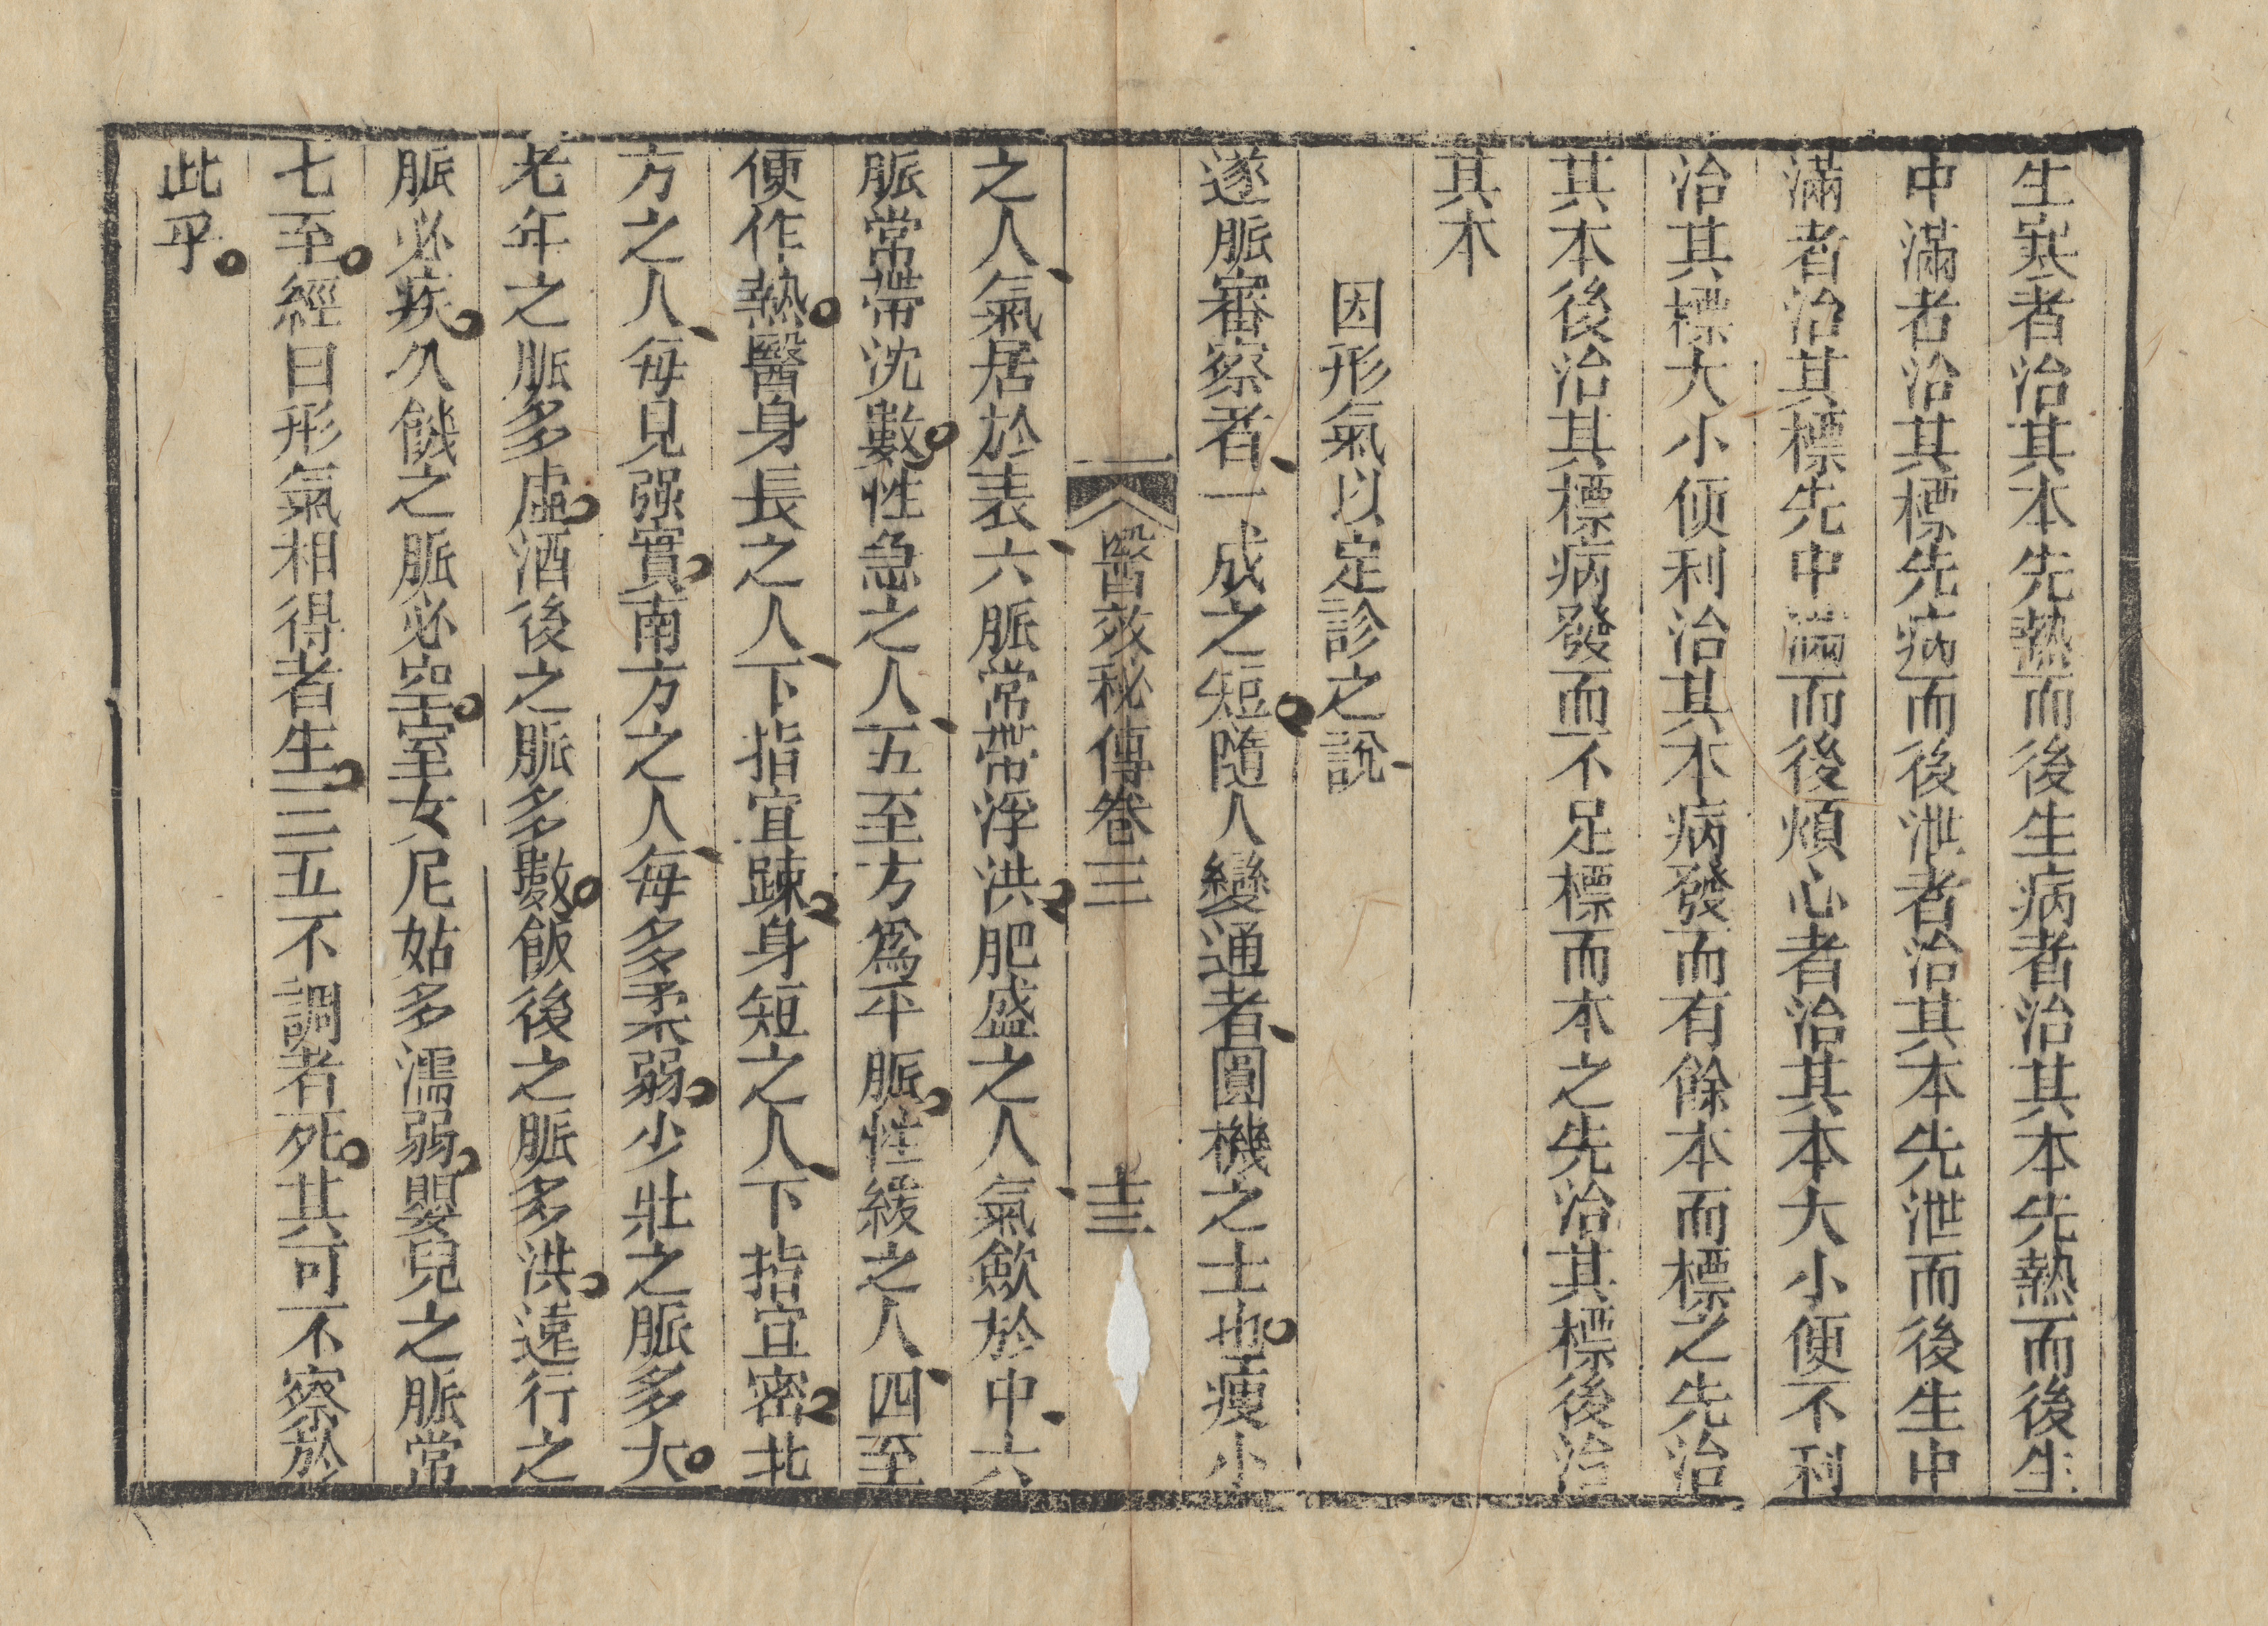 生寒者治其本先熱而後生病者治其本先熱而後生
中滿者治其標先病而後泄者治其本先泄而後生中
滿者治其標先中滿而後煩心者治其本大小便不利
治其標大小便利治其本病發而有餘本而標之先治
其本後治其標病發而不足標而本之先治其標後治
其本
因形氣以定診之說
遂脈審察者一成之短隨人變通者圓機之士也瘦小
醫效秘傳卷三
十三
之人氣居於表六脈常帶浮洪肥盛之人氣歛於中六
脈常帶沈數性急之人五至方爲平脈性緩之人四至
便作熱醫身長之人下指宜踈身短之人下指宜密北
方之人每見强實南方之人每多柔弱少壯之脈多大
老年之脈多虛酒後之脈多數飯後之脈多洪遠行之
脈必疾久饑之脈必空室女尼姑多濡弱嬰兒之脈常
七至經曰形氣相得者生三五不調者死其可不察於
此乎